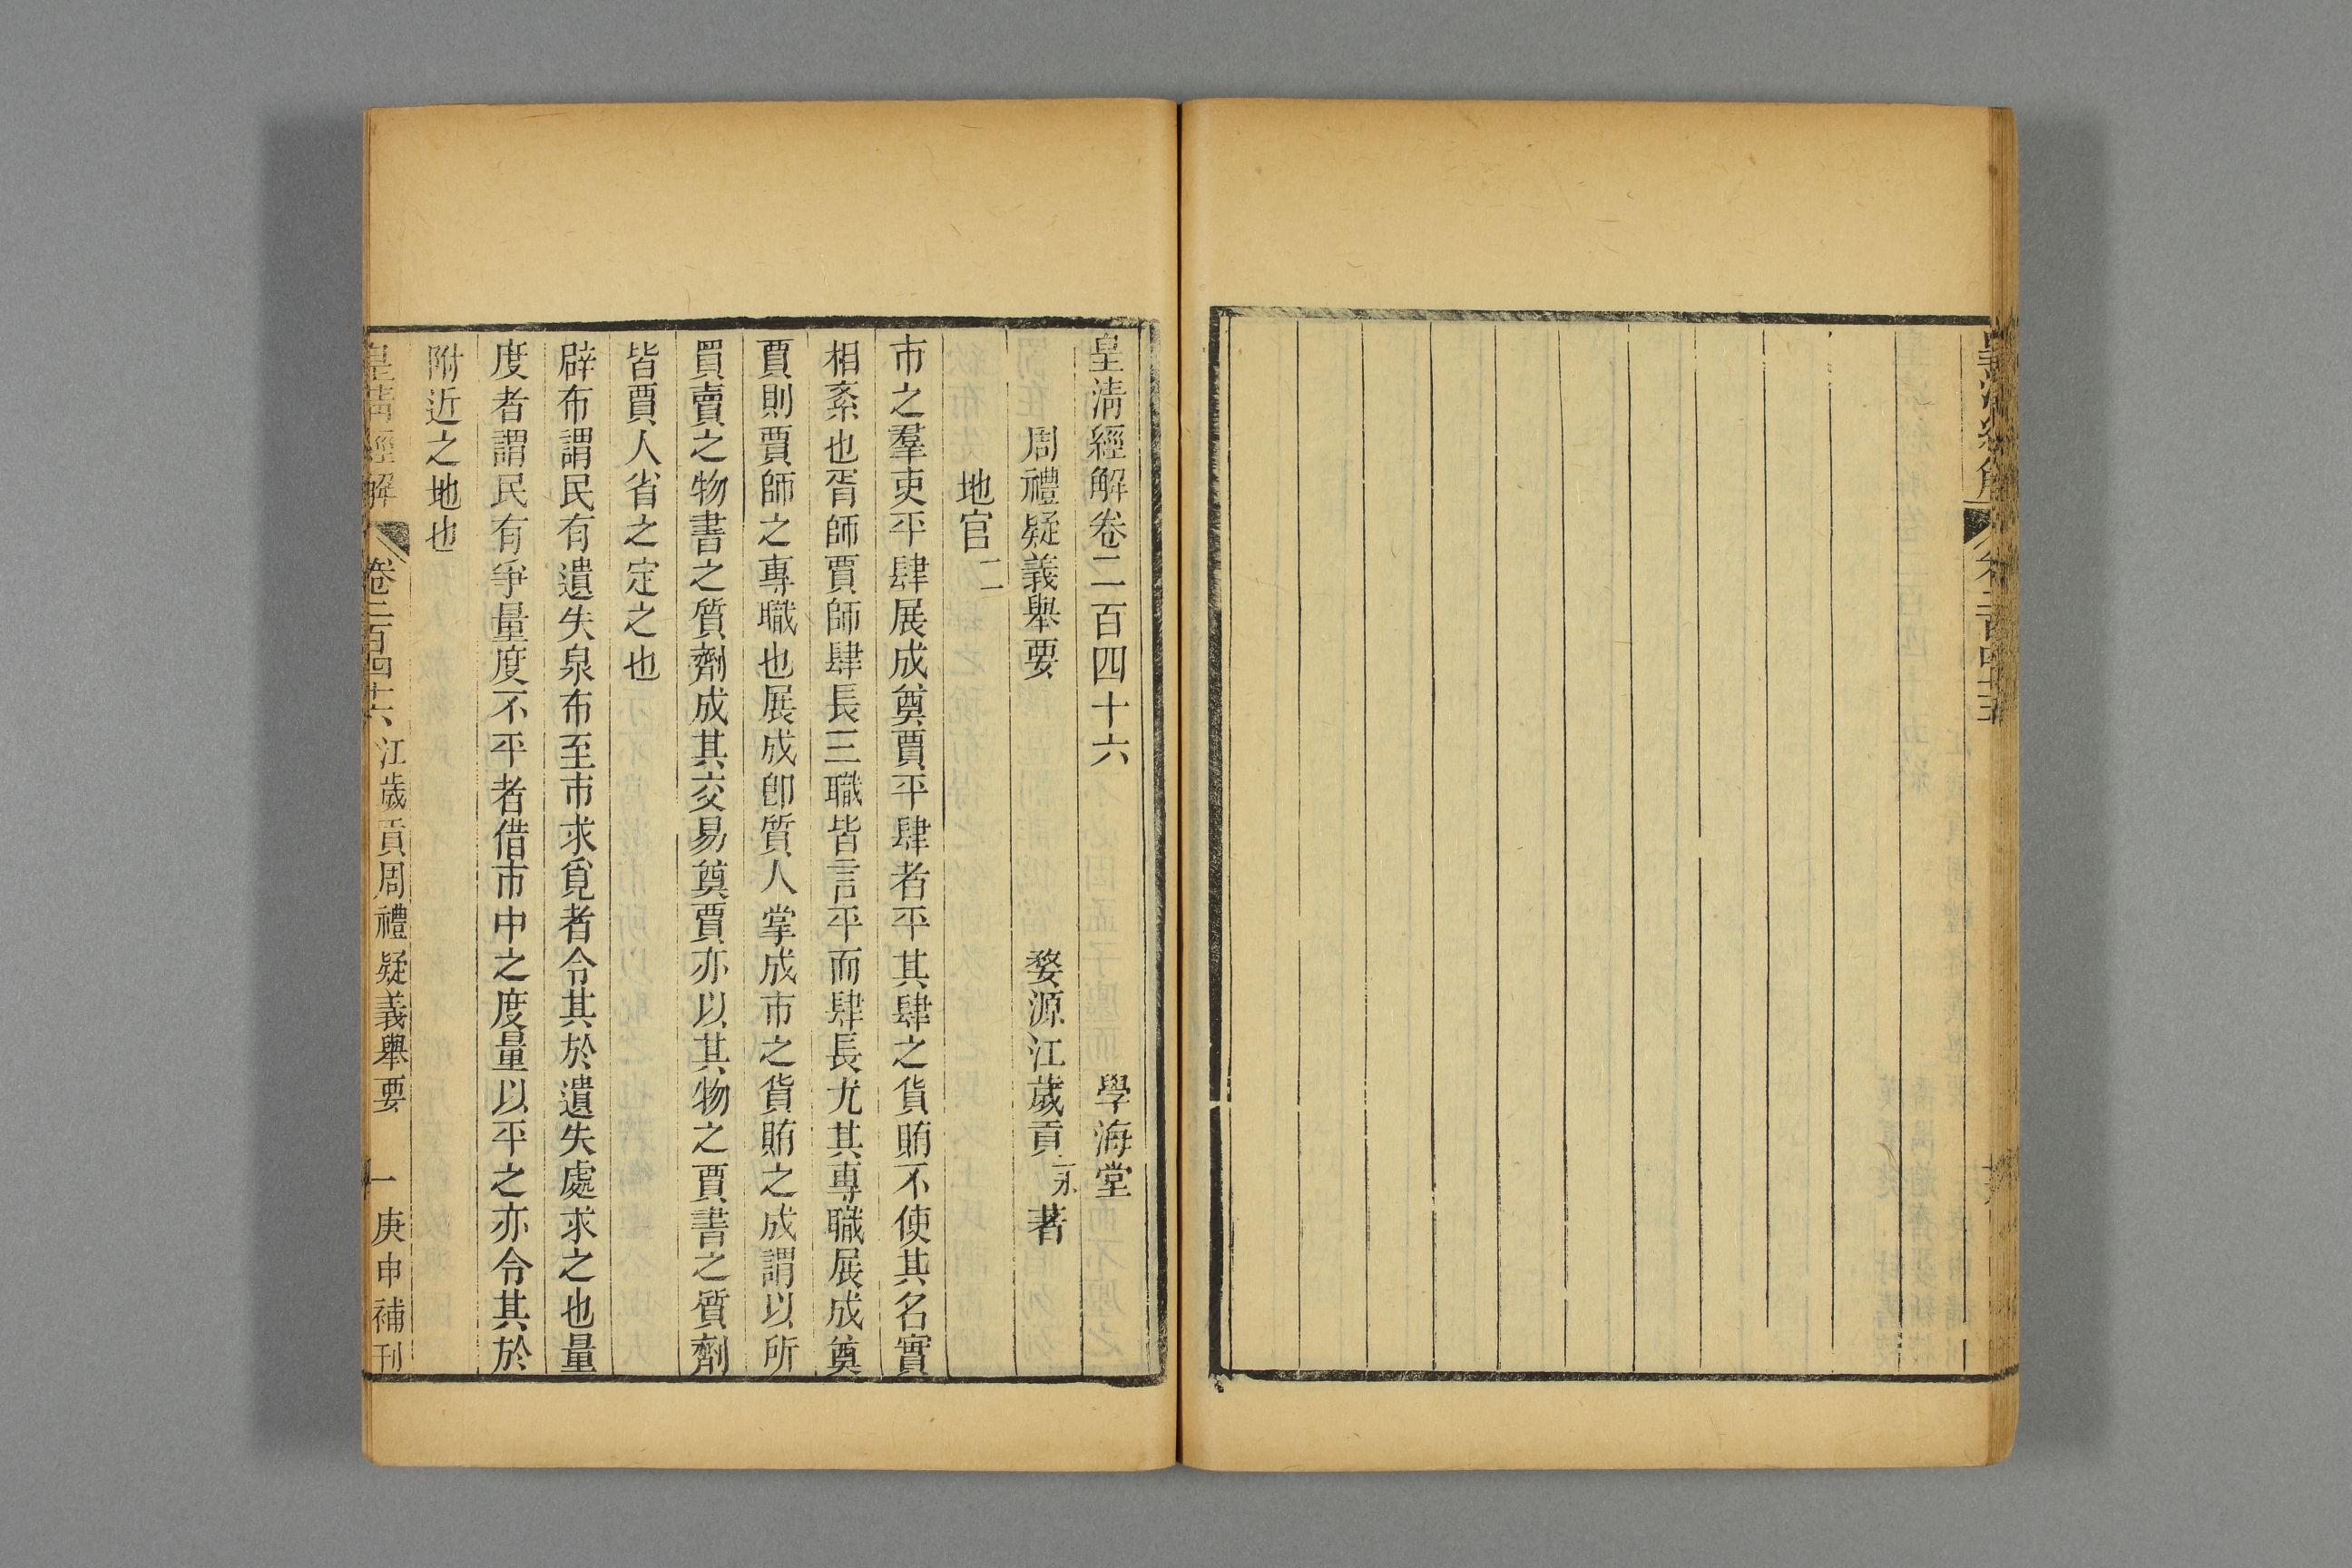 皇清經解卷二百四十六　學海堂
周禮疑義舉要　婺源江歲貢永著
地官二
市之羣吏平肆展成奠賈平肆者平其肆之貨賄不使其名實
相紊也胥師賈師肆長三職皆言平而肆長尤其專職展成奠
賈則賈師之專職也展成卽質人掌成市之貨賄之成謂以所
買賣之物書之質劑成其交易奠賈亦以其物之賈書之質劑
皆賈人省之定之也
辟布謂民有遺失泉布至市求覓者令其於遺失處求之也量
度者謂民有爭量度不平者借市中之度量以平之亦令其於
附近之地也
皇清經解　卷二百四十六　江歲貢周禮疑義舉要　一　庚申補刊